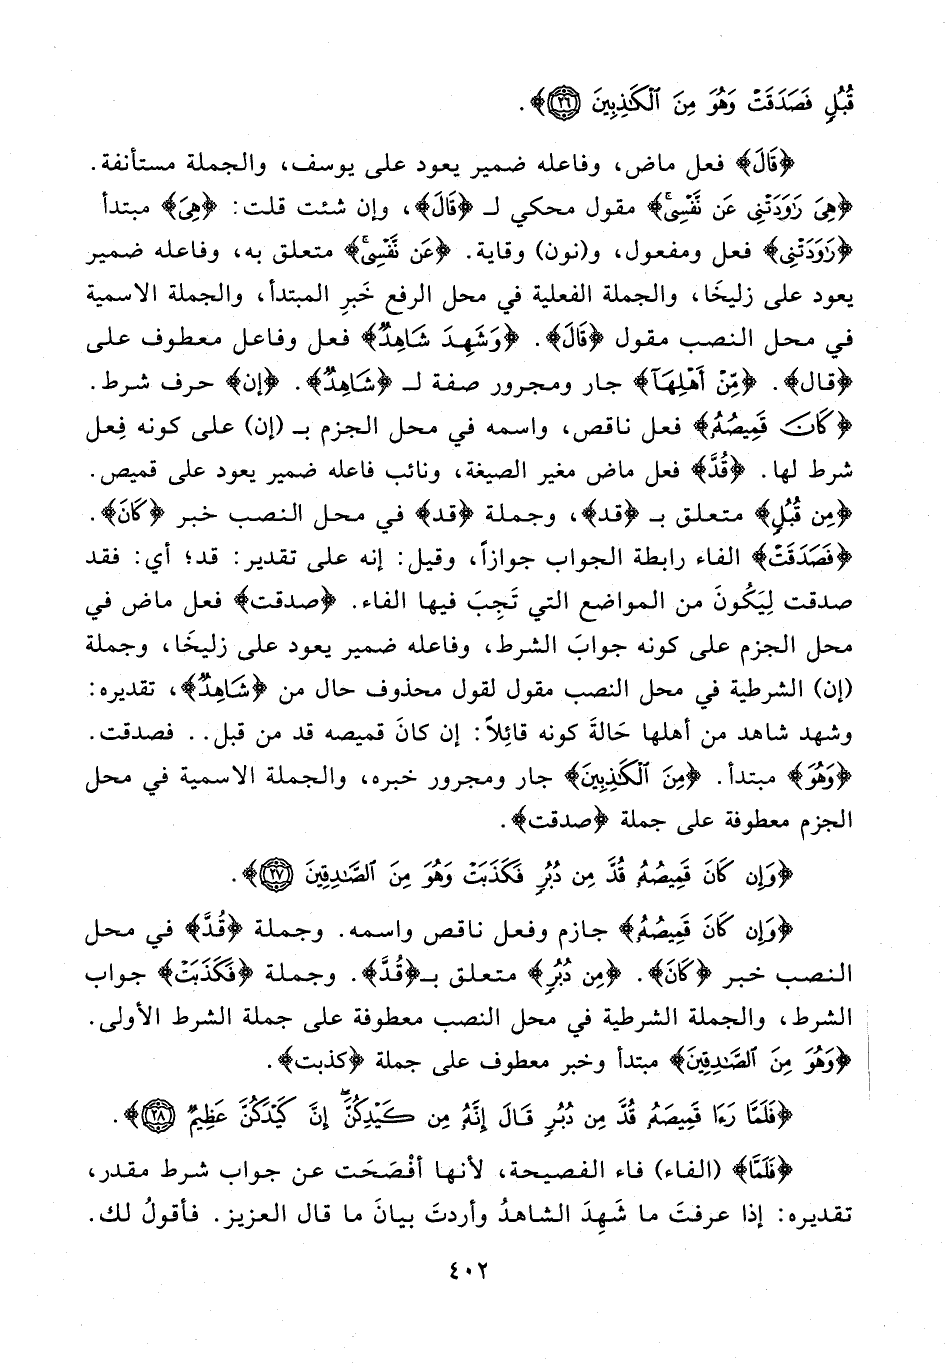 قُبُلٍ فَصَدَقَتْ وَهُوَ مِنَ ٱلْكَٰذِبِينَ ﴿٢٦﴾﴾.
﴿قَالَ﴾ فعل ماض، وفاعله ضمير يعود على يوسف، والجملة مستأنفة.
﴿هِىَ رَٰوَدَتْنِى عَن نَّفْسِىۚ﴾ مقول محكي لـ ﴿قَالَ﴾، وإن شئت قلت: ﴿هِىَ﴾ مبتدأ
﴿رَٰوَدَتْنِى﴾ فعل ومفعول، و(نون) وقاية. ﴿عَن نَّفْسِىۚ﴾ متعلق به، وفاعله ضمير
يعود على زليخَا، والجملة الفعلية في محل الرفع خَبرِ المبتدأ، والجملة الاسمية
في محل النصب مقول ﴿قَالَ﴾. ﴿وَشَهِدَ شَاهِدٌ﴾ فعل وفاعل معطوف على
﴿قال﴾. ﴿مِّنْ أَهْلِهَآ﴾ جار ومجرور صفة لـ ﴿شَاهِدٌ﴾. ﴿إن﴾ حرف شرط.
﴿كَانَ قَمِيصُهُۥ﴾ فعل ناقص، واسمه في محل الجزم بـ (إن) على كونه فِعل
شرط لها. ﴿قُدَّ﴾ فعل ماض مغير الصيغة، ونائب فاعله ضمير يعود على قميص.
﴿مِن قُبُلٍ﴾ متعلق بـ ﴿قد﴾، وجملة ﴿قد﴾ في محل النصب خبر ﴿كَانَ﴾.
﴿فَصَدَقَتْ﴾ الفاء رابطة الجواب جوازاً، وقيل: إنه على تقدير: قد؛ أي: فقد
صدقت لِيَكُونَ من المواضع التي تَجِبَ فيها الفاء. ﴿صدقت﴾ فعل ماض في
محل الجزم على كونه جوابَ الشرط، وفاعله ضمير يعود على زليخَا، وجملة
(إن) الشرطية في محل النصب مقول لقول محذوف حال من ﴿شَاهِدٌ﴾، تقديره:
وشهد شاهد من أهلها حَالةَ كونه قائِلاً: إن كانَ قميصه قد من قبل.. فصدقت.
﴿وَهُوَ﴾ مبتدأ. ﴿مِنَ ٱلْكَٰذِبِينَ﴾ جار ومجرور خبره، والجملة الاسمية في محل
الجزم معطوفة على جملة ﴿صدقت﴾.
﴿وَإِن كَانَ قَمِيصُهُۥ قُدَّ مِن دُبُرٍ فَكَذَبَتْ وَهُوَ مِنَ ٱلصَّٰدِقِينَ ﴿٢٧﴾﴾.
﴿وَإِن كَانَ قَمِيصُهُۥ﴾ جازم وفعل ناقص واسمه. وجملة ﴿قُدَّ﴾ في محل
النصب خبر ﴿كَانَ﴾. ﴿مِن دُبُرٍ﴾ متعلق بـ﴿قُدَّ﴾. وجملة ﴿فَكَذَبَتْ﴾ جواب
الشرط، والجملة الشرطية في محل النصب معطوفة على جملة الشرط الأولى.
﴿وَهُوَ مِنَ ٱلصَّٰدِقِينَ﴾ مبتدأ وخبر معطوف على جملة ﴿كذبت﴾.
﴿فَلَمَّا رَءَا قَمِيصَهُۥ قُدَّ مِن دُبُرٍ قَالَ إِنَّهُۥ مِن كَيْدِكُنَّۖ إِنَّ كَيْدَكُنَّ عَظِيمٌ ﴿٢٨﴾﴾.
﴿فَلَمَّا﴾ (الفاء) فاء الفصيحة، لأنها أفْصَحَت عن جواب شرط مقدر،
تقديره: إذا عرفتَ ما شَهِدَ الشاهدُ وأردتَ بيانَ ما قال العزيز. فأقولُ لك.
٤٠٢